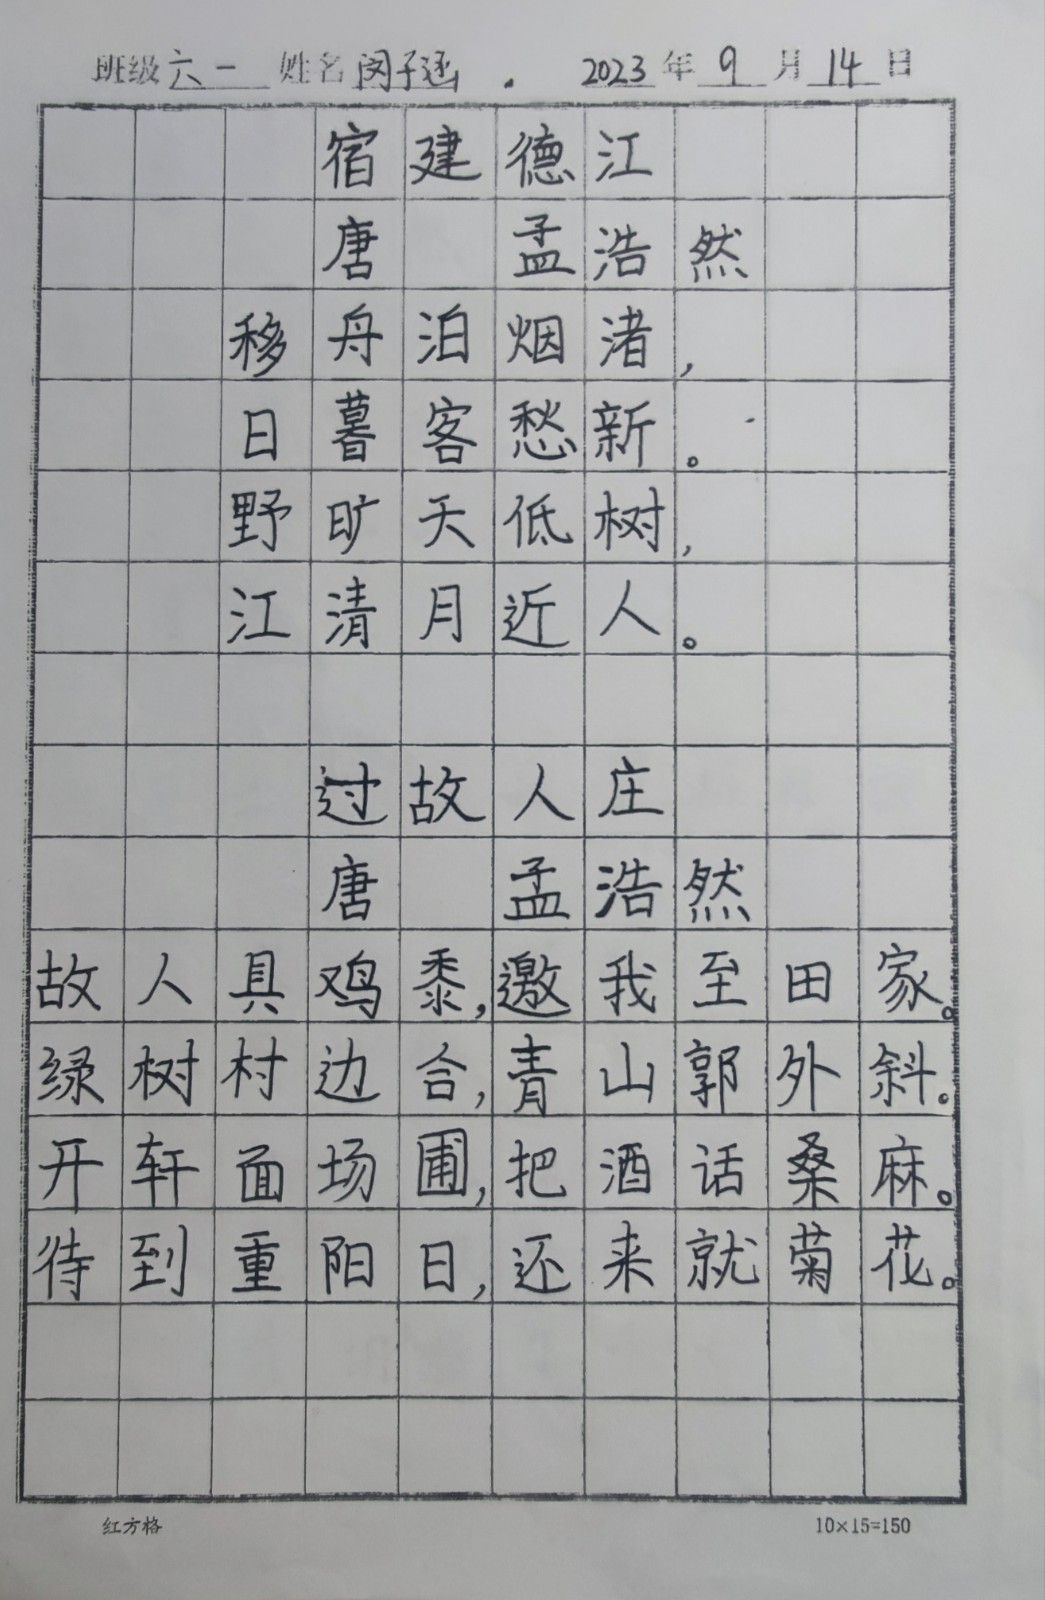 班级六一 姓名闵子涵. 2023年9月14日
宿建德江
唐 孟浩然
移舟泊烟渚，
日暮客愁新。
野旷天低树，
江清月近人。
过故人庄
唐 孟浩然
故人具鸡黍，邀我至田家。
绿树村边合，青山郭外斜。
开轩面场圃，把酒话桑麻。
待到重阳日，还来就菊花。
红方格 10×15=150